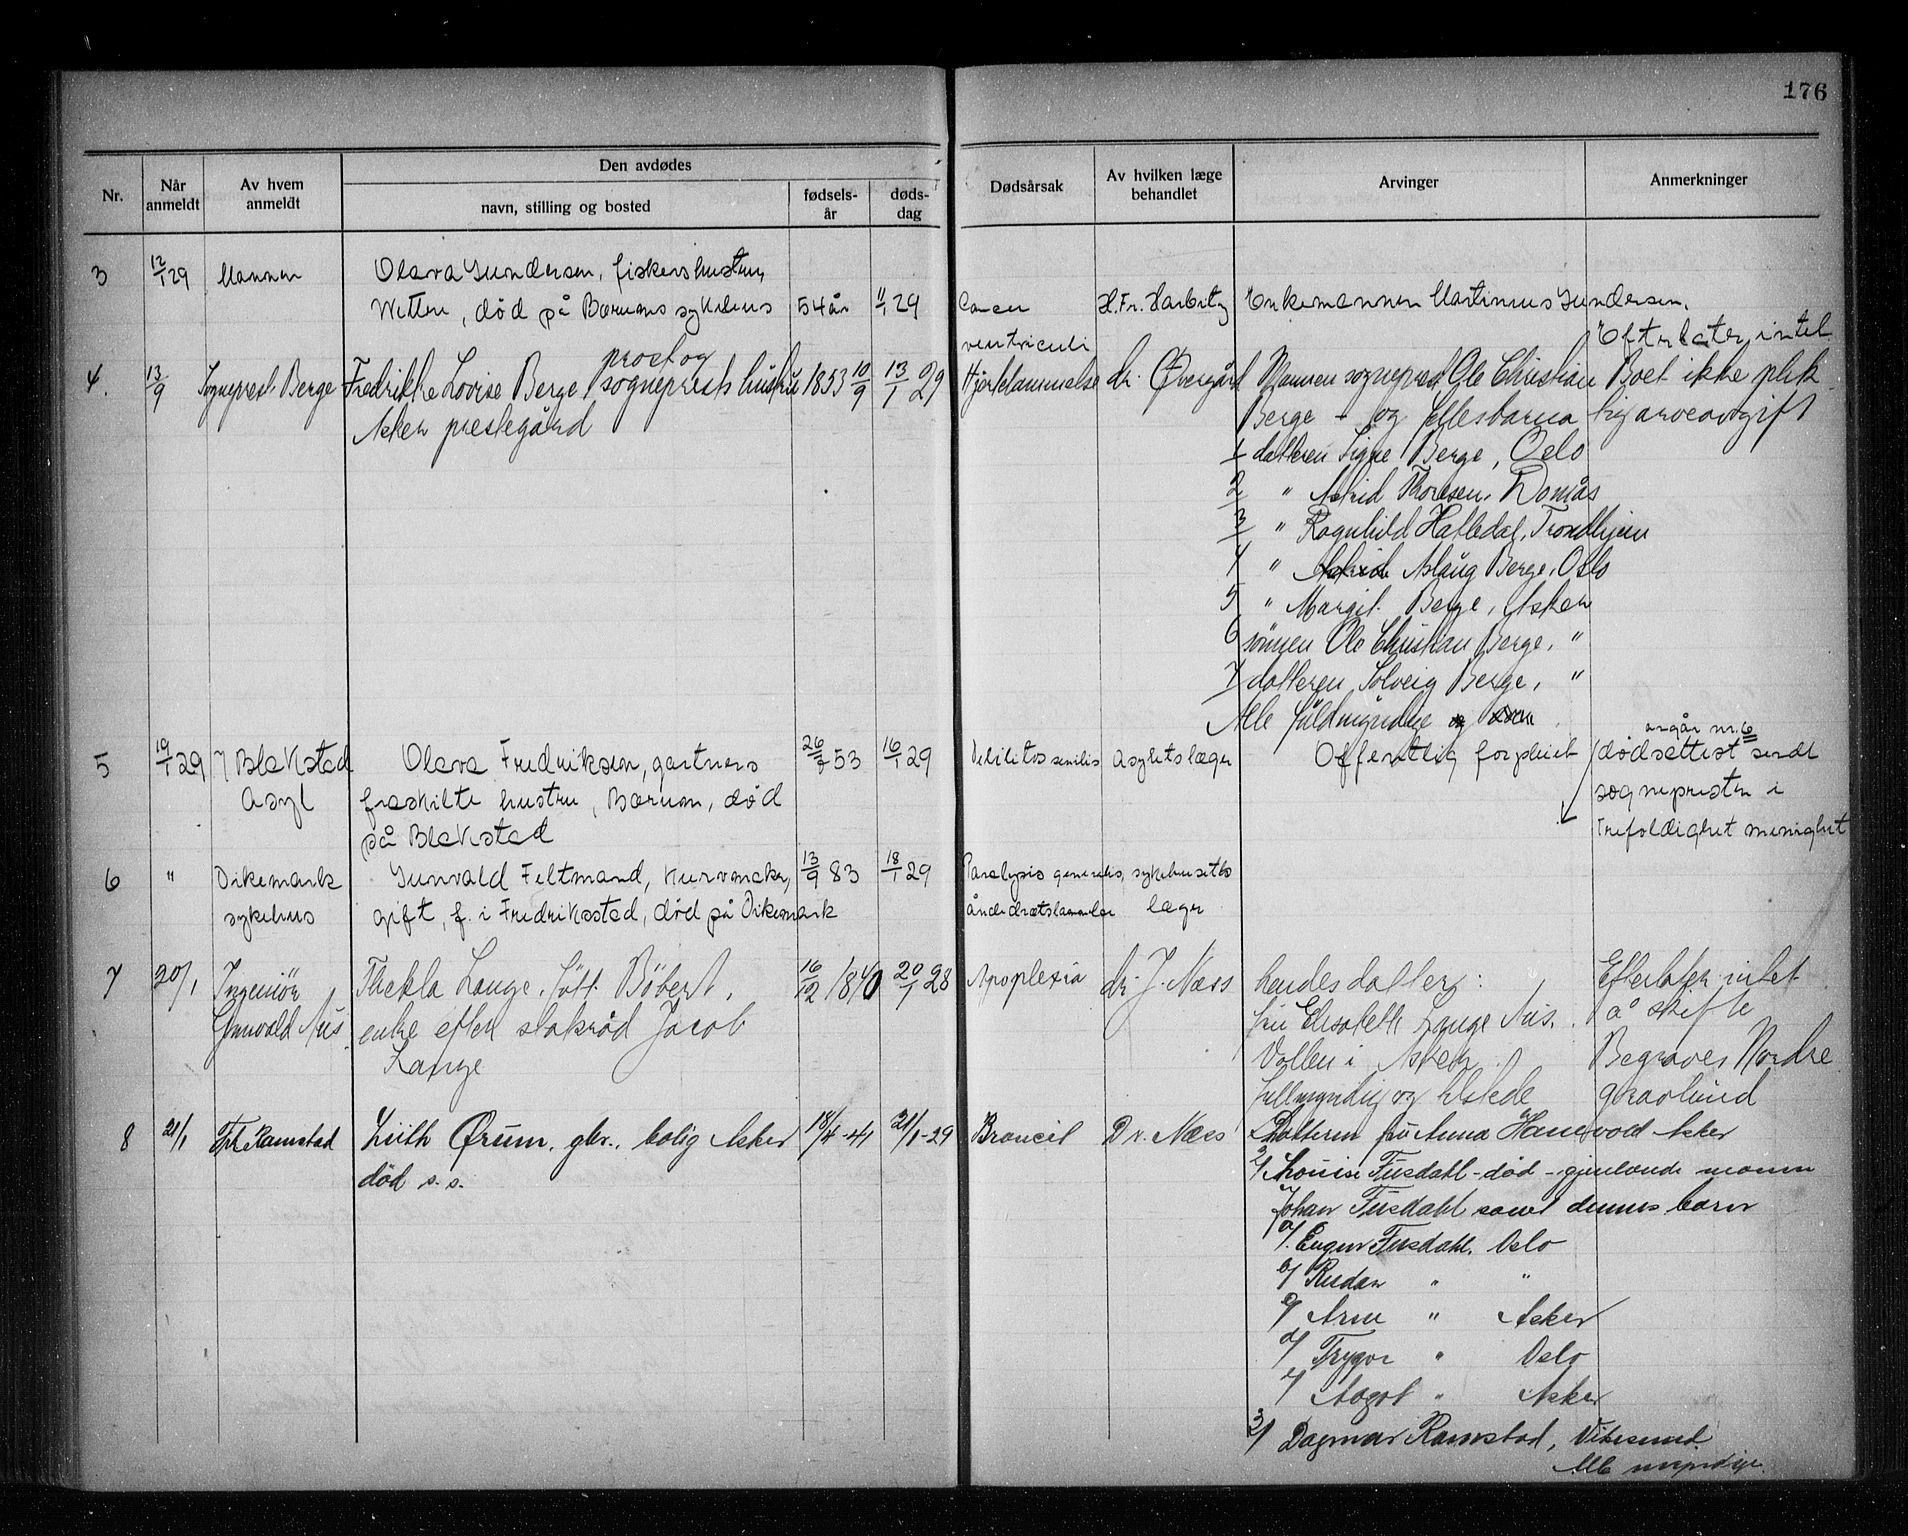 176
Nr.
Når anmeldt
Av hvem anmeldt
Den avdødes
navn, stilling og bosted
fødsels-år
døds-dag
Dødsårsak
Av hvilken læge behandlet
Arvinger
Anmerkninger
3 12/1 29 Mannen Olava Gundersen, fiskershustru,
Wettre, død på Bærums sykehus 54 år 11/1 29 Cancer H. Fr. Harbitz Enkemannen Martinius Gundersen.
ventriculi Efterlater intet
4. 13/9 Sogneprest Berge Fredrikke Lovise Berge, prost og sogneprests hustru 1853 10/9 13/1 29 Hjertelammelse dr. Øvergård Mannen sogneprest Ole Christian Boet ikke plik-
Asker prestegård Berge - og fellesbarna tig arveavgift
1 datteren Signe Berge, Oslo
2 " Astrid Thoresen, Domås
3 " Ragnhild Hatledal, Trondhjem
4 " Astrid Aslaug Berge, Oslo
5 " Margit Berge, Asker
6 sønnen Ole Christian Berge, "
7 datteren Solveig Berge, "
Alle fuldmyndige og
angår nr. 6
5 19/1 29 Blakstad Olava Fredriksen, gartners 26/7 53 16/1 29 Debilitas senilis Asylets læger Offentlig forpleiet dødsattest sendt
Asyl fraskilte hustru, Bærum, død sognepresten i
på Blakstad Trefoldighet menighet
6 " Dikemark Gunvald Feltmand, kurvmaker, 13/9 83 18/1 29 Paralysis generalis, sykehusets
sykehus gift, f. i Fredrikstad, død på Dikemark åndedrætslammelse læger
7 20/1 Ingeniør Thekla Lange, født Böbert, 16/12 1840 20/1 28 Apoplexia dr. J. Næss hendes datter: Efterlater intet
Gunvald Aus enke efter statsråd Jacob fru Elisabeth Lange Aus. å skifte
Lange Vollen i Asker. Begraves Nordre
fullmyndig og tilstede gravlund
8 21/1 Fr. Ramstad Ørum, gbr., bolig Asker 18/4-41 21/1-29 Broncit Dr. Næss Datteren fru Anna Hanevold Asker
død s. s. 2/ Louise Fusdahl - død - gjenlevende mann
Johan Fusdahl samt dennes barn
a/ Eugen Fusdahl, Oslo
b/ " "
c/ Arne " Asker
d/ Trygve " Oslo
e/ Aagot " Asker
3/ Dagmar Ramstad,
Alle myndige